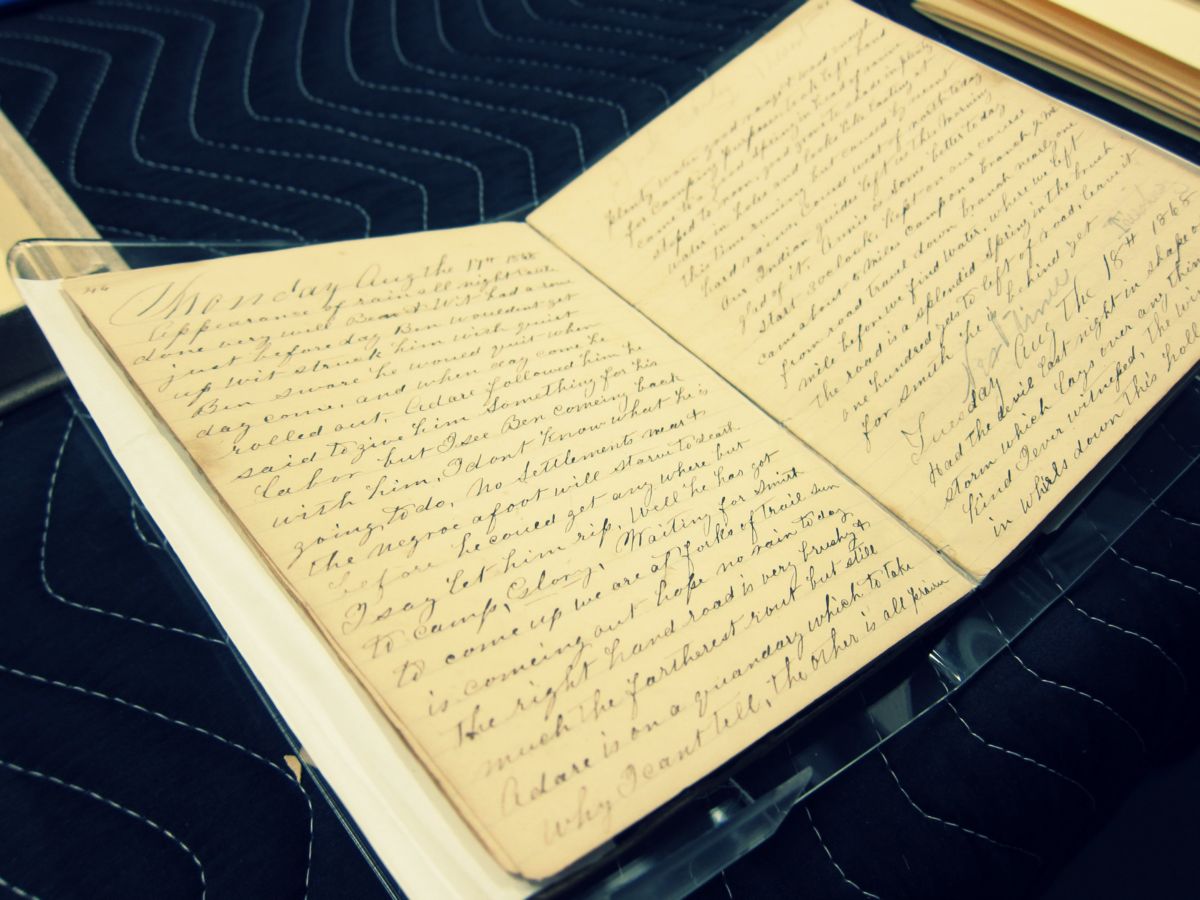 Monday Aug the 17th 1868
Appearance of rain all night rain
done very well Ben & Wit had a
just before day Ben wouldent get
up wit struck him with quirt
Ben sware he would quit when
day come, and when day came he
rolled out. Adare followed him he
said to give him something for his
labor but I see Ben comeing back
with him, I dont know what he is
going to do, no settlements near &
the negroe afoot will starve to death
before he could get any where but
I say let him rip, Well he has got
to camp, Glory, Waiting for Smith
to come up we are at forks of trail sun
is comeing out hope no rain today
The right hand road is very brushy &
much the fartherest rout but still
Adare is on a quandary which to take
why I cant tell, the other is all prairie
plenty water good range & wood enough
for camping purposes, took left hand
came to a spring in head of ravine
stoped to noon, good grass & shade in plenty
water in holes and looks like lasting at
this time running but caused by recent
hard rains. Course west of north today
Our Indian guide left us this morning
glad of it. Annie is some better today
Start 3 oclock, Kept on our course
came about 10 miles camp on a branch
from road travel down branch nearly one
mile before we find water, where we left
the road is a splendid spring in the brush
one hundred yds to left of road, leave it
for Smith he is behind yet
Tuesday Aug The 18th 1868
Had the devil last night in shape of
storm which lays over any thing
kind I ever witnessed, The wind
in whirls down this hollow